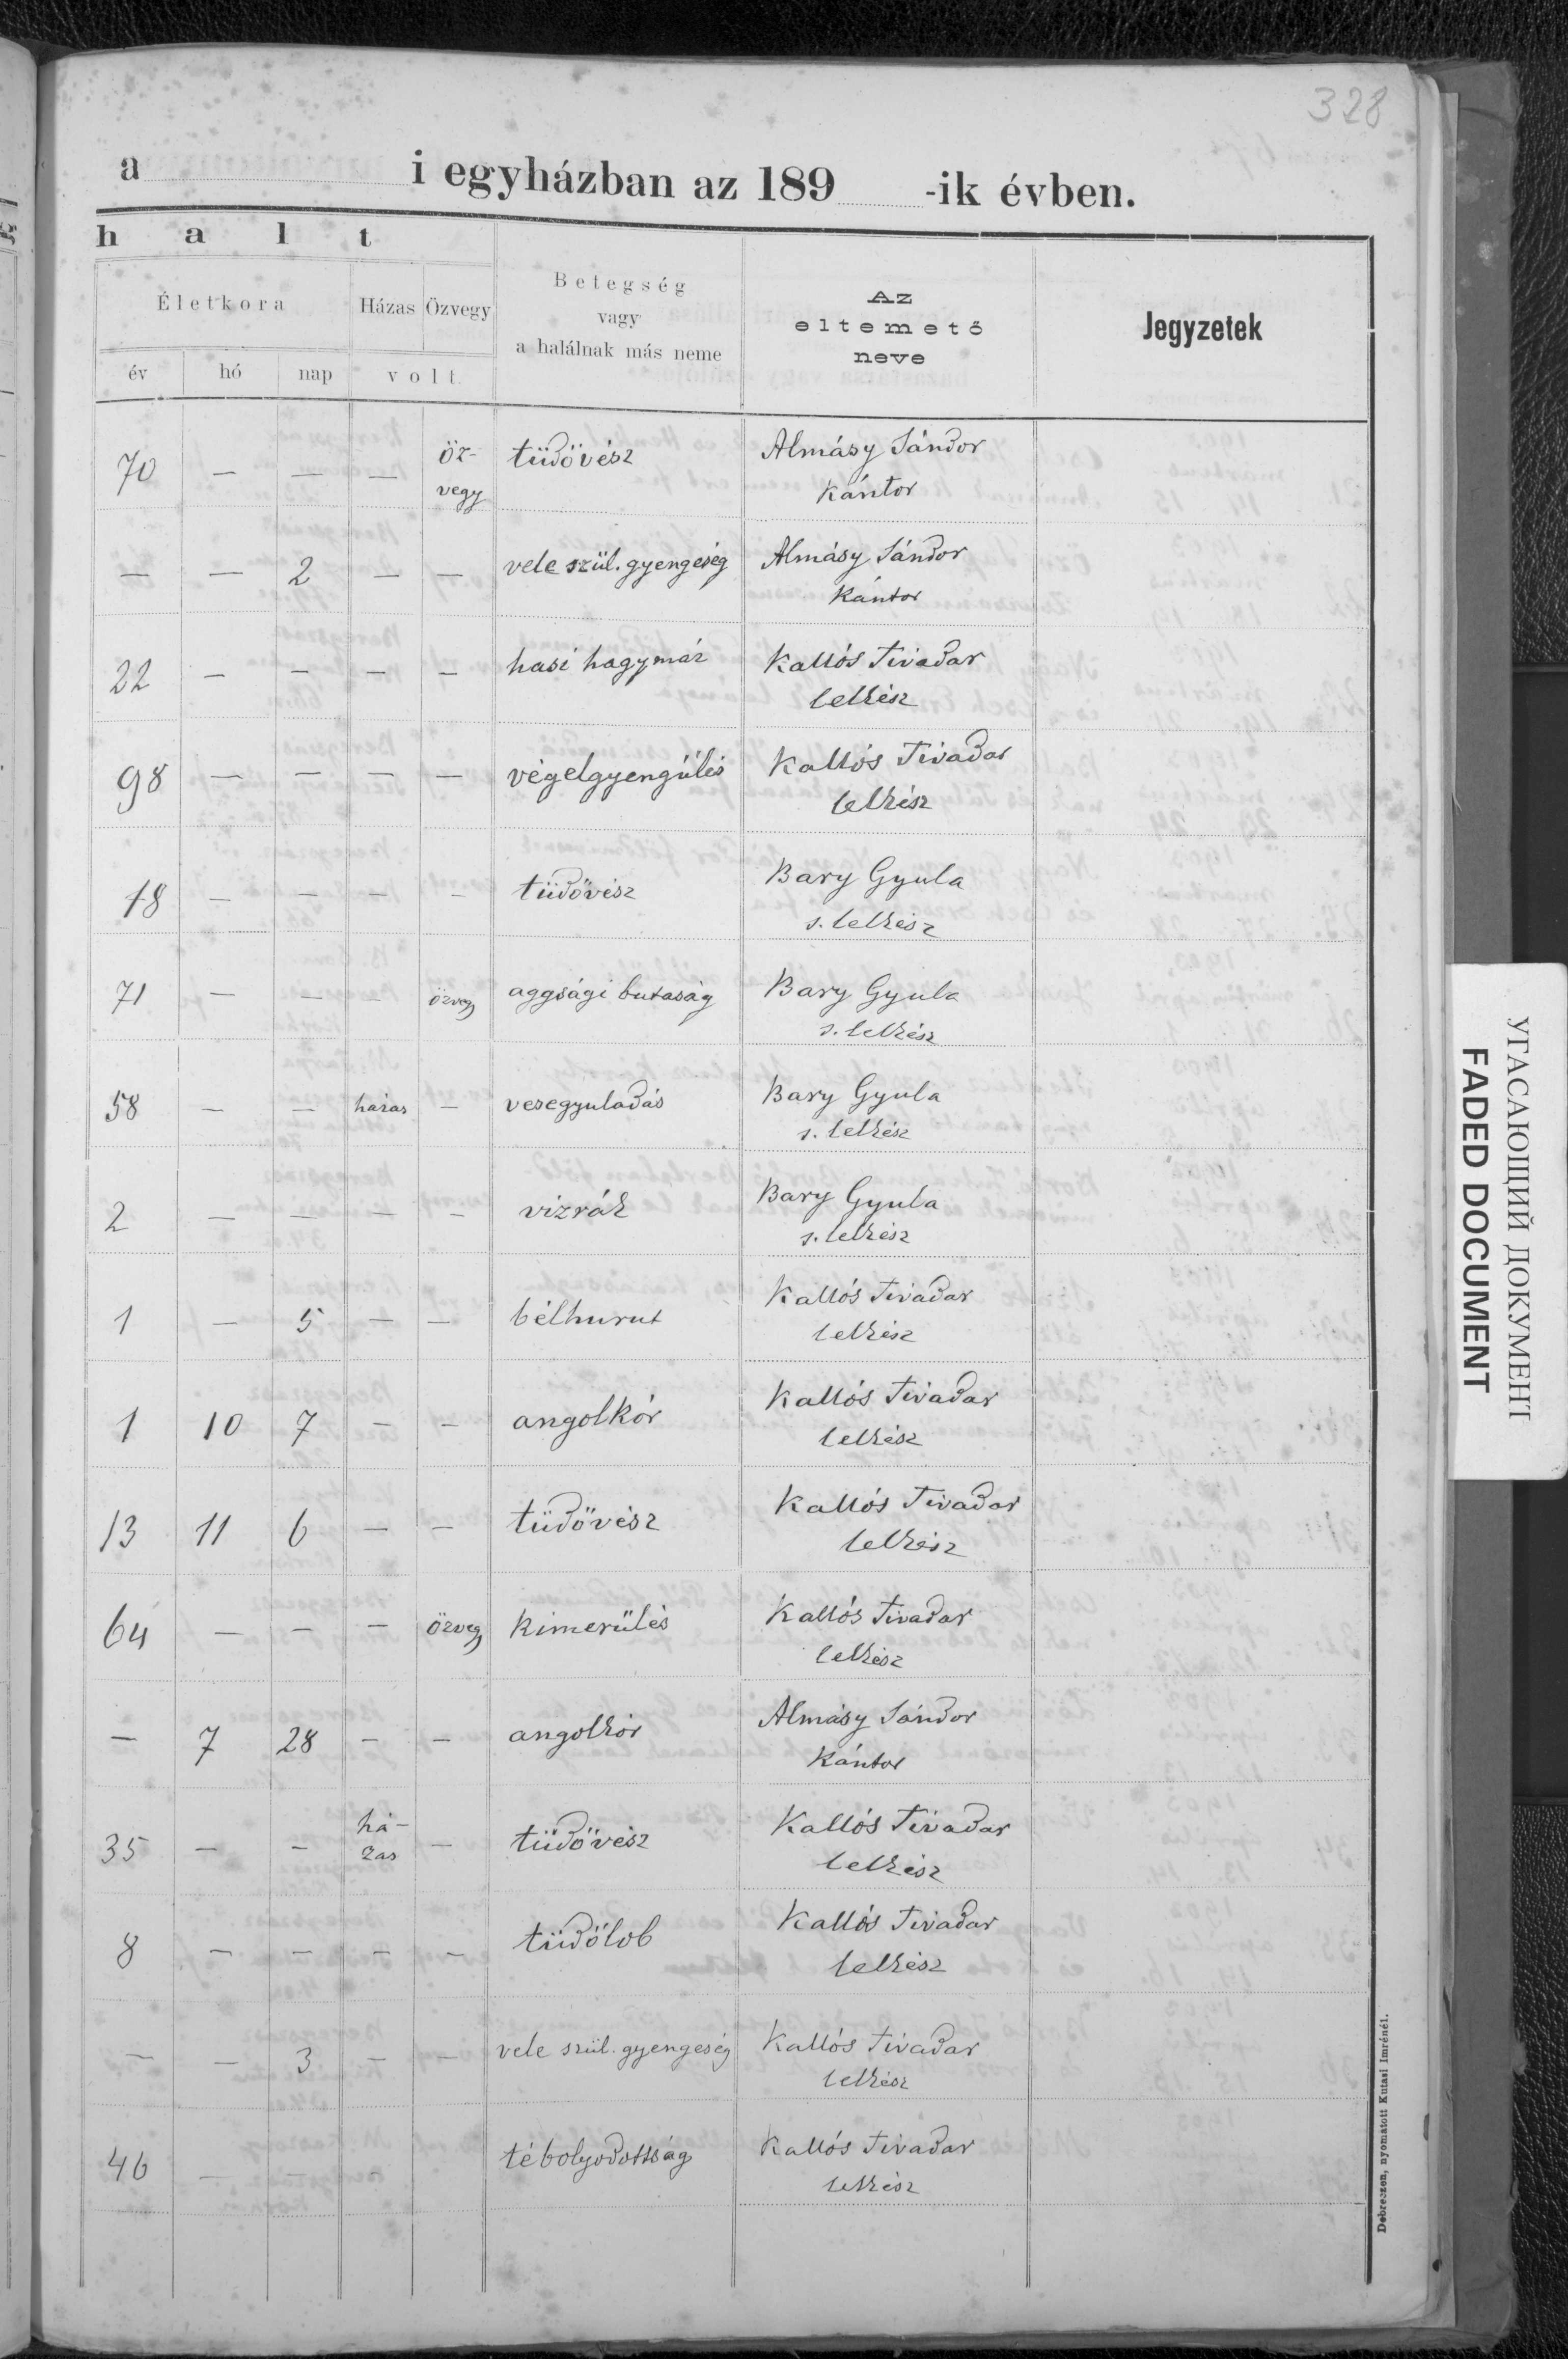 328
a i egyházban az 189 -ik évben.
halt
Életkora Házas Özvegy Betegség vagy a halálnak más neme Az eltemető neve Jegyzetek
év hó nap volt
70 — — — öz- tüdővész Almásy Sándor
vegy Kántor
— — 2 — — vele szül. gyengeség Almásy Sándor
Kántor
22 — — — — hasi hagymáz Kallós Tivadar
lelkész
98 — — — — végelgyengülés Kallós Tivadar
lelkész
18 — — — — tüdővész Bary Gyula
s. lelkész
71 — — — özvegy aggsági butaság Bary Gyula
s. lelkész
58 — — házas — vesegyuladás Bary Gyula
s. lelkész
2 — — — — vizrák Bary Gyula
s. lelkész
1 — 5 — — bélhurut Kallós Tivadar
lelkész
1 10 7 — — angolkór Kallós Tivadar
lelkész
13 11 6 — — tüdővész Kallós Tivadar
lelkész
64 — — — özvegy Kimerülés Kallós Tivadar
lelkész
— 7 28 — — angolkór Almásy Sándor
Kántor
35 — — há- — tüdővész Kallós Tivadar
zas lelkész
8 — — — — tüdőlob Kallós Tivadar
lelkész
— — 3 — — vele szül. gyengeség Kallós Tivadar
lelkész
46 — — tébolyodottság Kallós Tivadar
lelkész
Debreczen, nyomatott Kutasi Imrénél.
УГАСАЮЩИЙ ДОКУМЕНТ
FADED DOCUMENT